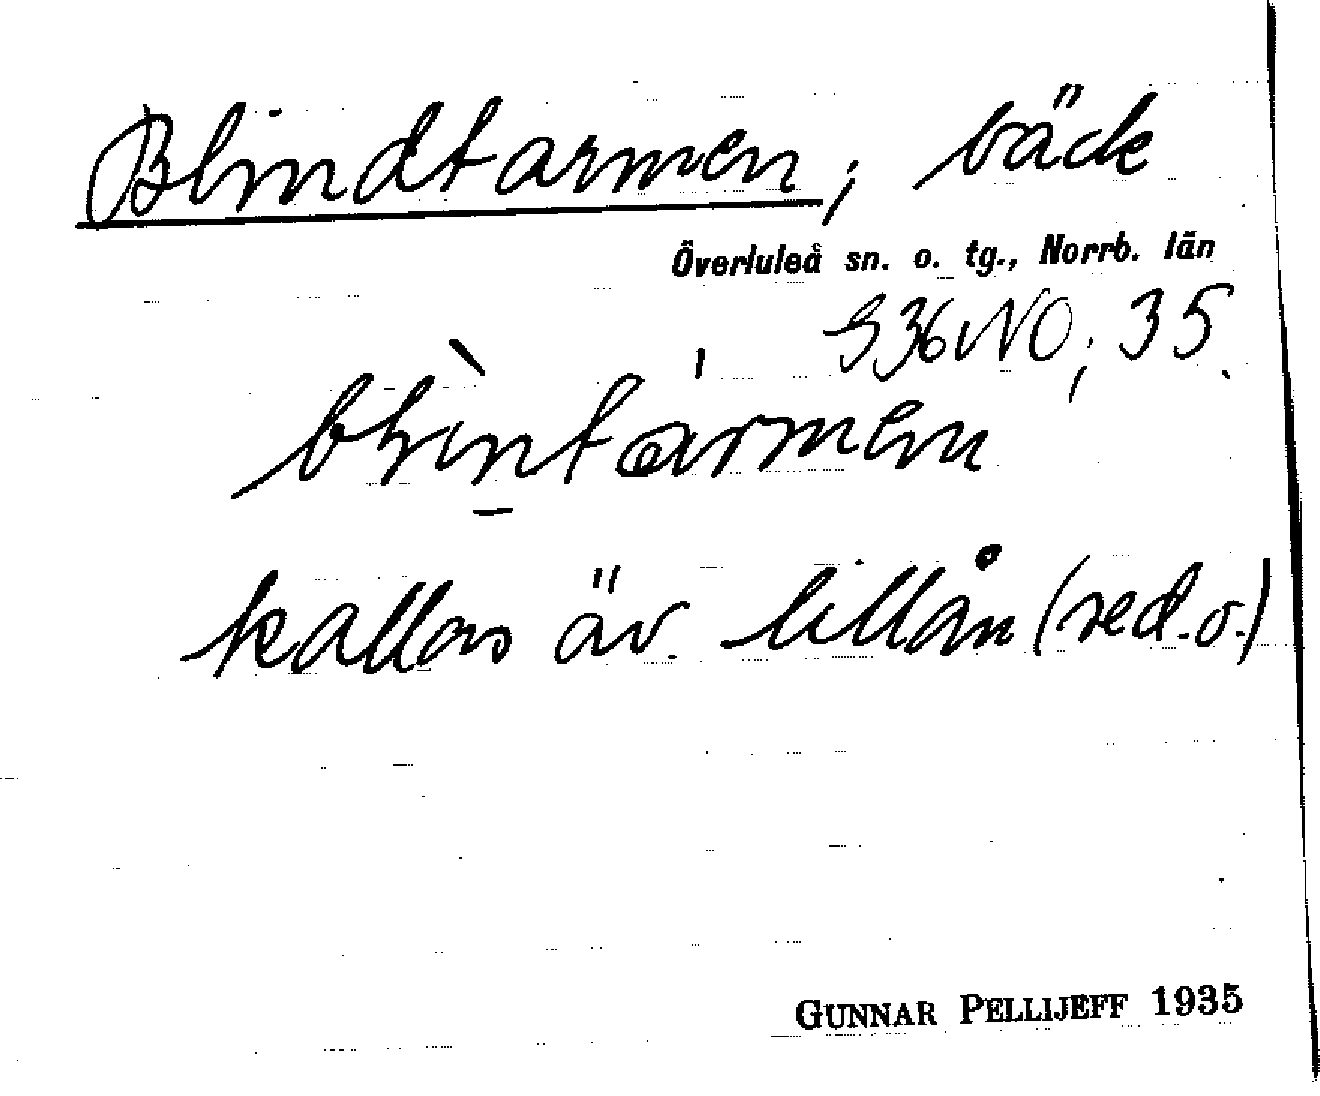 Blindtarmen, bäck
Överluleå sn. o. tg., Norrb. län
S36NO; 35.
blìntármen
kallas äv. lillån (red.o.)
GUNNAR PELLIJEFF 1935